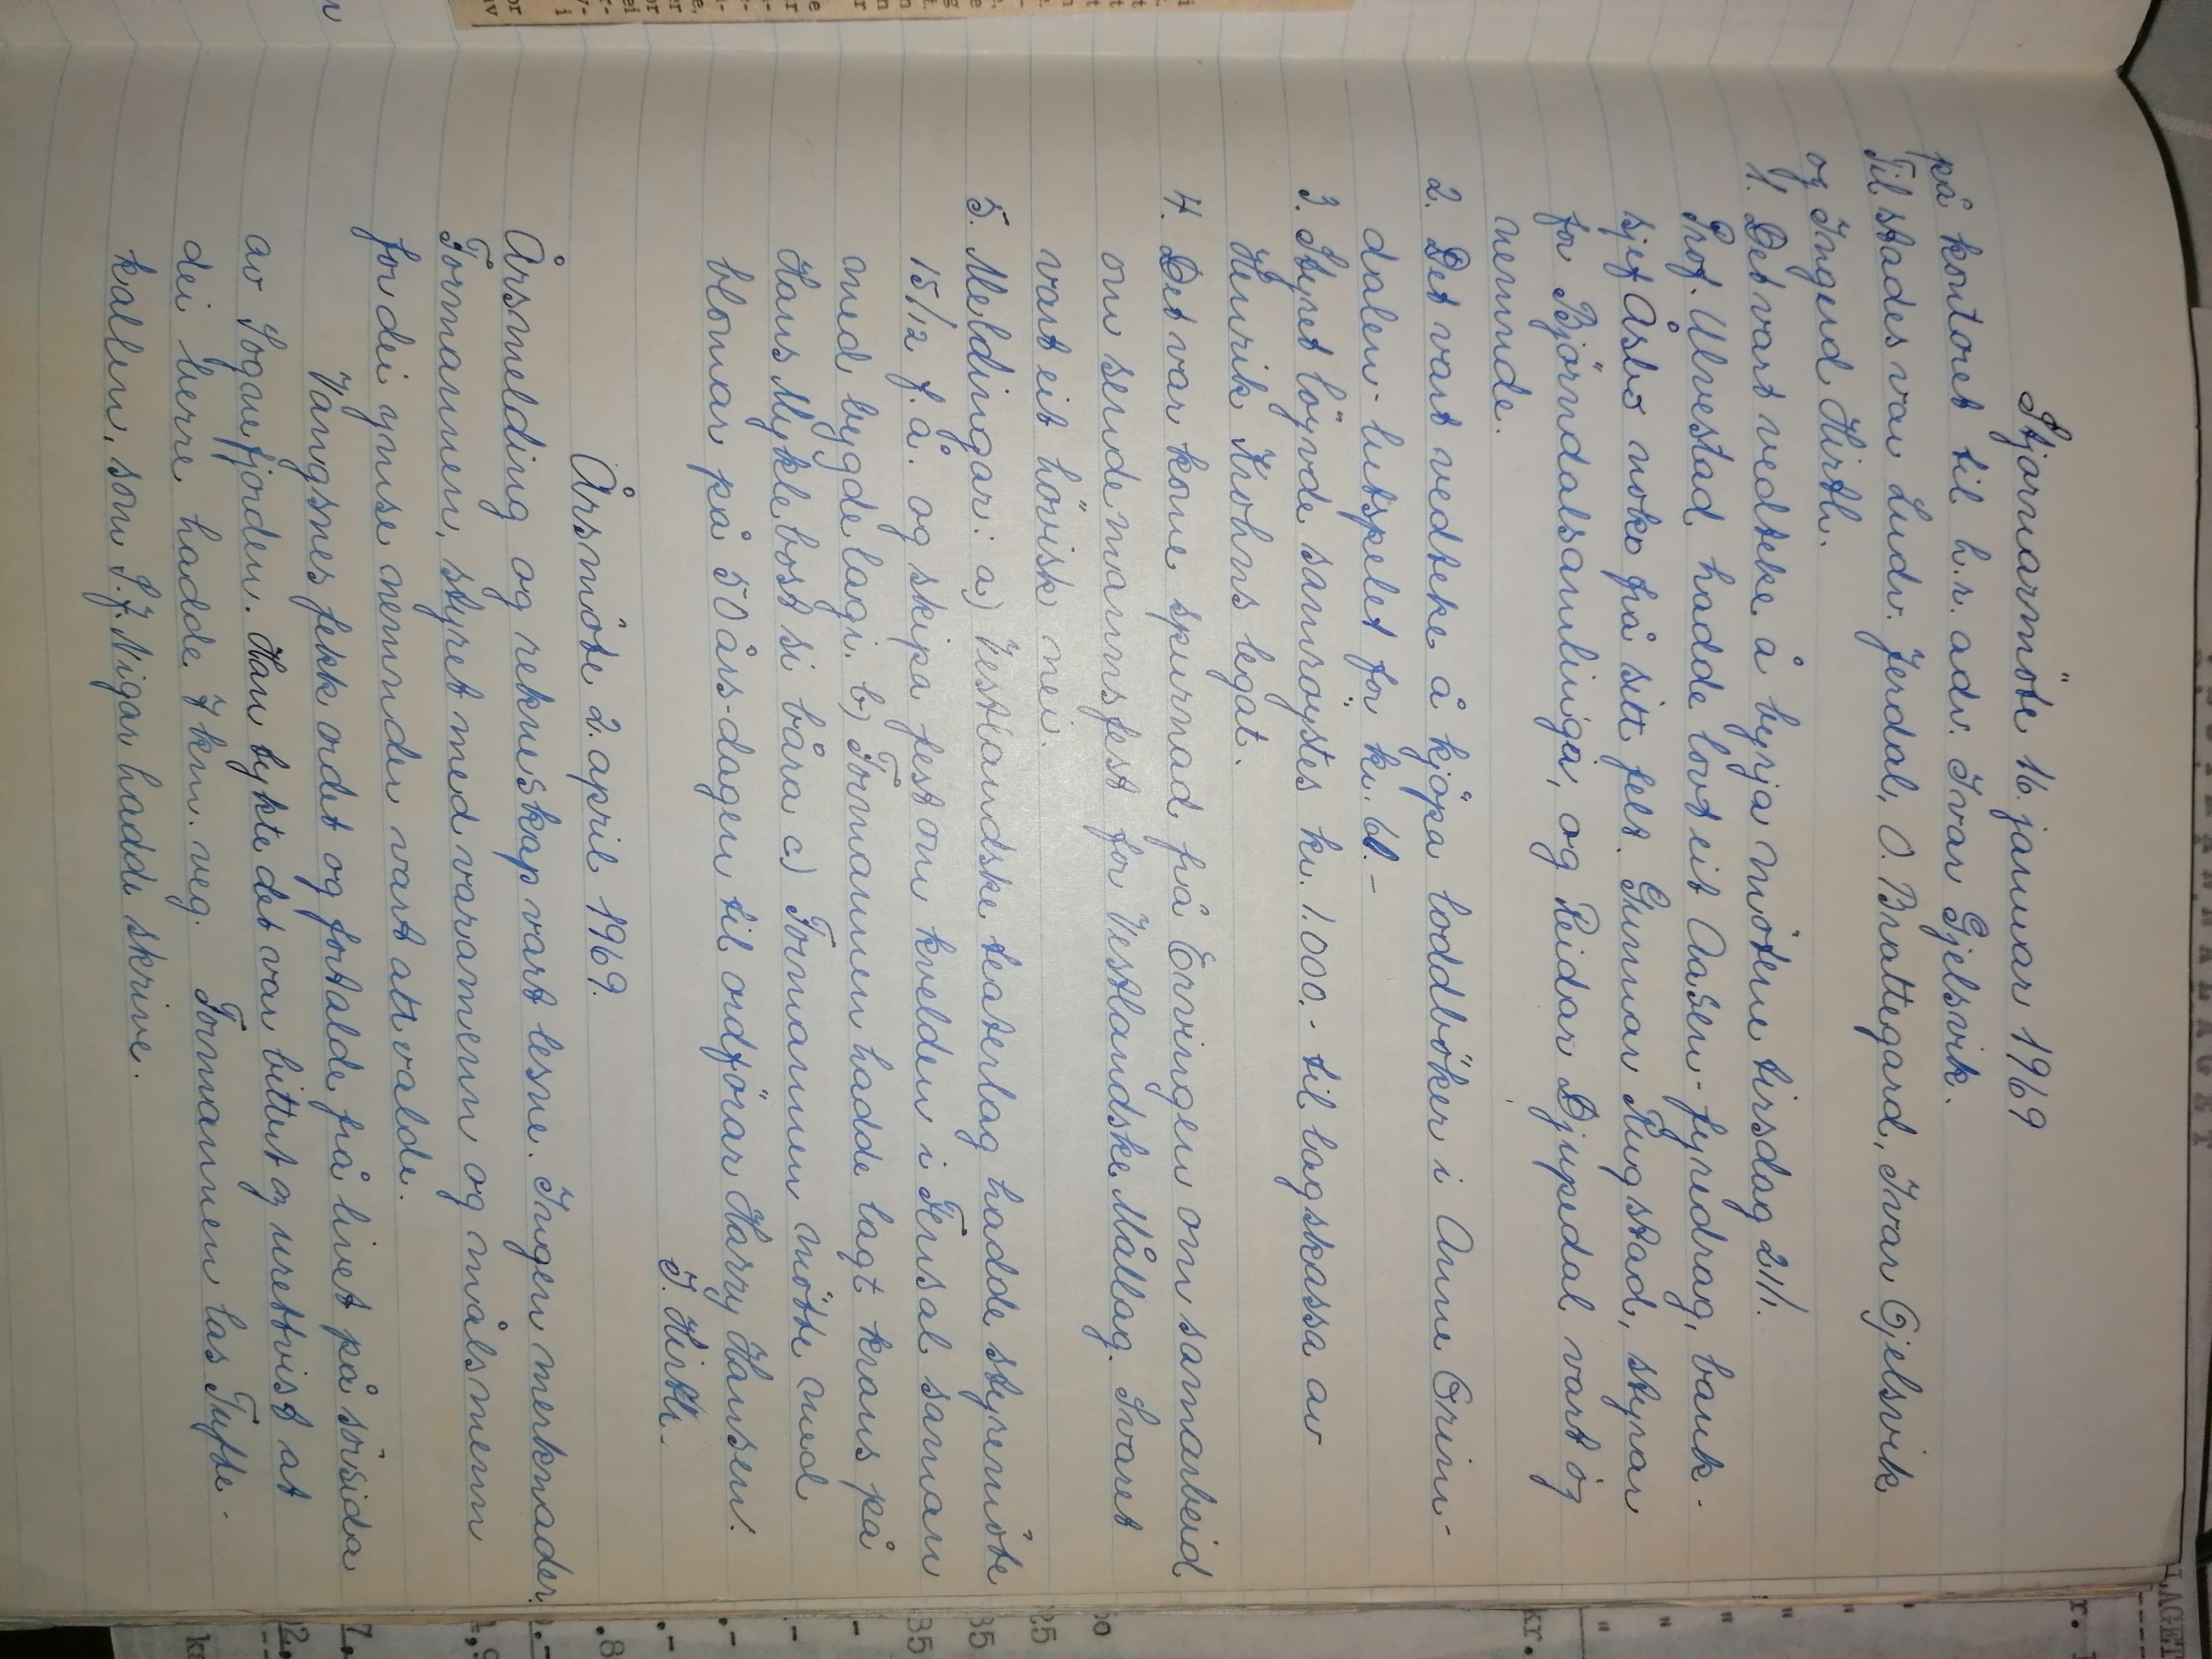 Stjornarmöte 16. januar 1969
på kontoret til h.r. adv. Ivar Gjelsvik.
Til stades var Ludv. Jerdal, O. Brattegard, Ivar Gjelsvik
og Ingerd Hirth.
1. Det vart vedteke å byrja möterne tirsdag 21/1.
Prof. Ulvestad hadde lovt eit Aasen-fyredrag, bank-
sjef Åsbö noko frå sitt felt. Gunnar Rugstad, styrar
for Björndalsamlinga, og Reidar Djupedal vart óg
nemnde.
2. Det vart vedteke å kjöpa loddböker i Anne Grim-
dalen-lutspelet for kr. 60.-
3. Styret löyvde samröystes kr. 1.000.- til lagskassa av
Henrik Krohns legat.
4. Det var kome spurnad frå Ervingen om samarbeid
om sendemannsfest for Vestlandske Mållag. Svaret
vart eit hövisk nei.
5. Meldingar: a) Vestlandske teaterlag hadde styremöte
15/12 f. å. og skipa fest om kvelden i Tensal saman
med bygdelagi. b) Formannen hadde lagt krans på
Hans Myklebost si båra c) Formannen mötte med
blomar på 50 års-dagen til ordförar Harry Hansen.
I. Hirth.
Årsmöte 2. april 1969.
Årsmelding og rekneskap vart lesne. Ingen merknader.
Formannen, styret med varamenn og målsmenn
for dei ymse nemnder vart att valde.
Vangsnes fekk ordet og fortalde frå livet på sörsida
av Sognefjorden. Han tykte det var bittert og urettvist at
dei berre hadde 7 km. veg. Formannen las Tufte-
kallen, som S. J. Nigar hadde skrive.